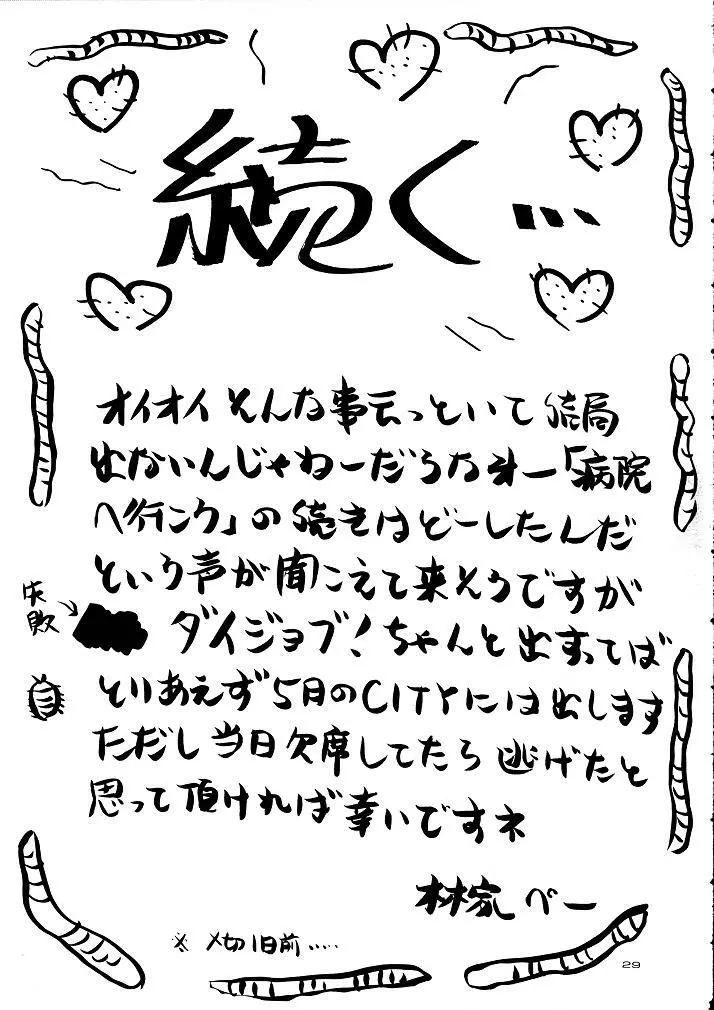 続く…
オイオイ そんな事云っといて 結局
出ないんじゃねーだろなオー「病院
へ行ンク」の続きはどーしたんだ
という声が聞こえて来そうですが
失敗
ダイジョブ！ちゃんと出すってば
とりあえず5月のCITYには出します
ただし当日欠席してたら逃げたと
思って頂ければ幸いですネ
林家ペー
※ 〆切1日前……
29